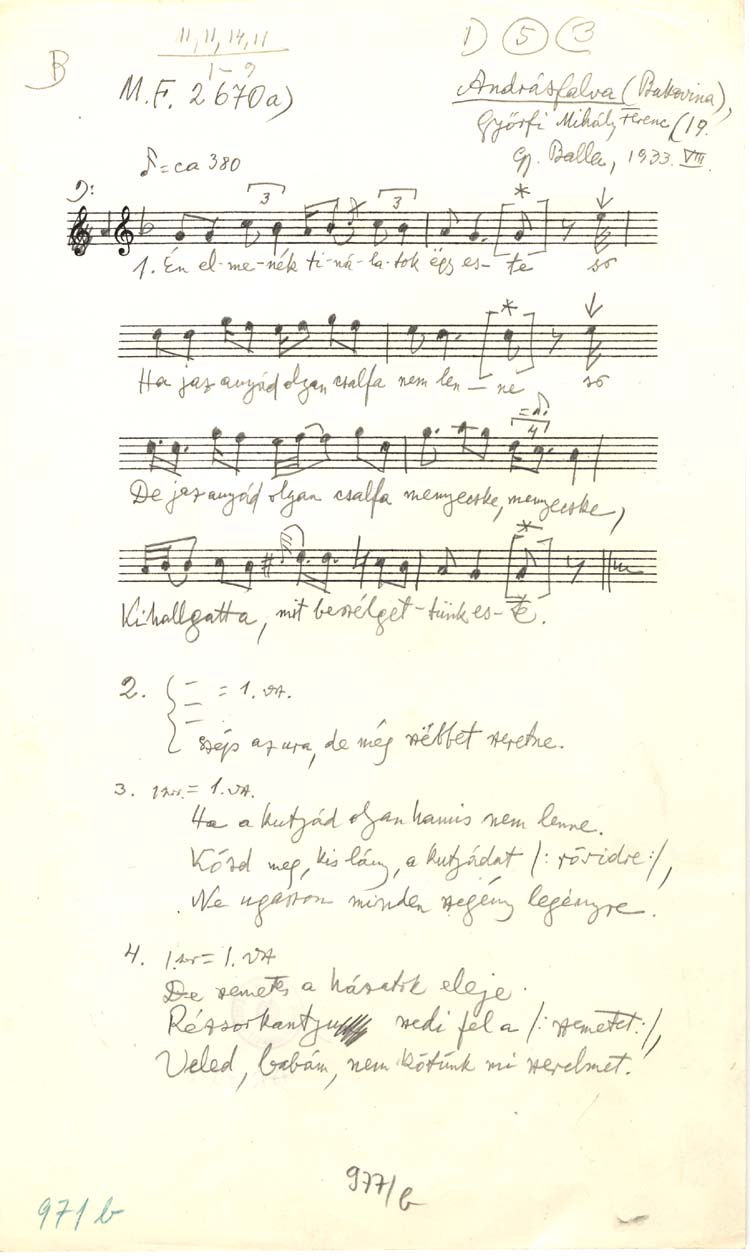 11, 11, 14, 11
1 – 9
B
1) 5 3
M.F. 2670a)
Andrásfalva (Bukovina),
Győrfi Mihály Ferenc (19.
Gy. Balla, 1933. VIII.
♪ = ca 380
3 3
*
1. Én el-me-nék ti-ná-la-tok ëgy es-te só
*
Ha jaz anyád olyan csalfa nem len – ne só
= ♩.
4
De jaz anyád olyan csalfa menyecske, menyecske,
*
Kihallgatta, mit beszélget-tünk es-te.
2. = 1. vsz.
szép az ura, de még szëbbet szeretne.
3. 1 sor = 1. vsz.
Ha a kutyád olyan hamis nem lenne.
Kösd meg, kis lány, a kutyádat /: rövidre :/,
Ne ugasson minden szegény legényre.
4. 1. sor = 1. vsz
De szemetes a házatok eleje.
szedi fel a /: szemetet :/,
Veled, babám, nem kötünk mi szerelmet.
977/b
971 b